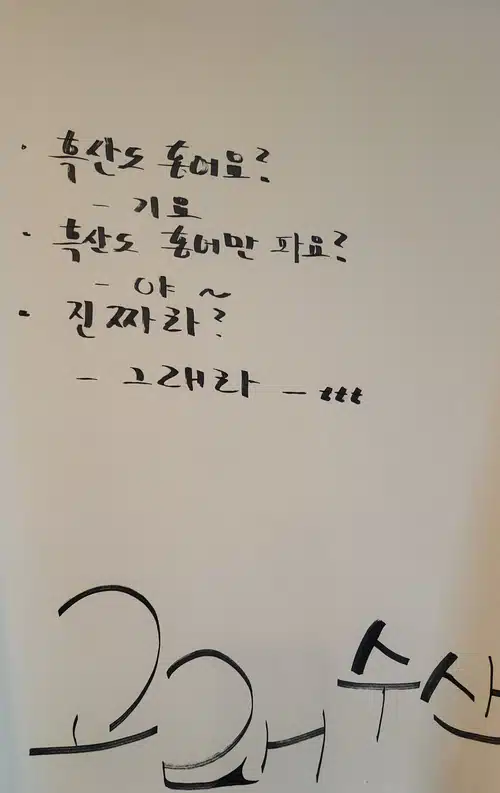 · 흑산도 홍어요?
- 기요
· 흑산도 홍어만 파요?
- 야 ~
· 진짜라?
- 그래라 - ttt
고래수산